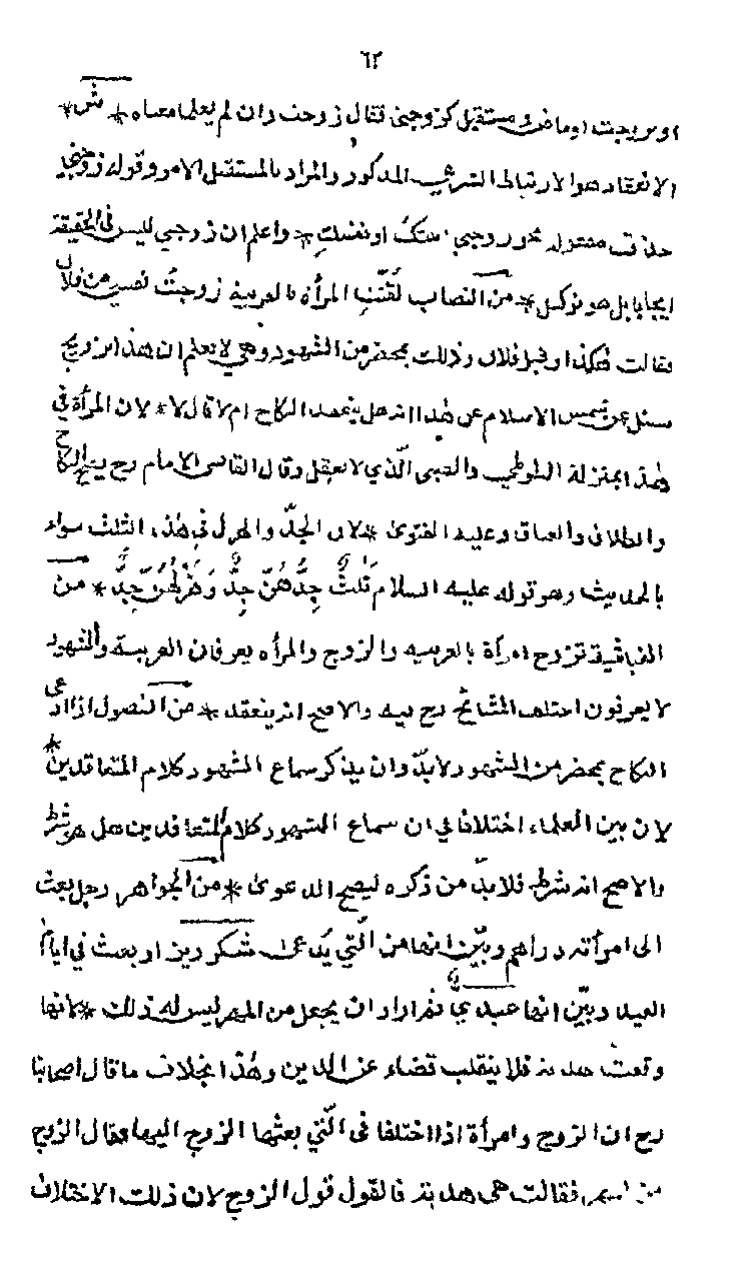 ٦٢
او تزوجت او ماض ومستقبل كزوجنى فقال زوجت وان لم يعلما معناه * ش *
الانعقاد هو الارتباط الشرعي المذكور والمراد بالمستقبل الامر وقوله زوجني
حذف مفعوله نحو زوجني بنتك او نفسك * واعلم ان زوجني ليس فى الحقيقة
ايجابا بل هو توكيل * من النصاب لقّنت المرأة بالعربية زوجتُ نفسي من فلان
فقالت هكذا وقبل فلان وذلك بمحضر من الشهود وهي لا تعلم ان هذا تزويج
سئل عن شمس الاسلام عن هذا انه هل ينعقد النكاح ام لا قال لا * لان المرأة في
هذا بمنزلة الطوطي والصبى الّذي لا يعقل وقال القاضى الامام رح يصح النكاح
والطلاق والعتاق وعليه الفتوى * لان الجدّ والهزل فى هذه الثلث سواء
بالحديث وهو قوله عليه السلام ثَلٰثٌ جِدُّهُنّ جِدٌّ وَهَزْلُهُنّ جِدٌّ * من
الغياثية تزوج امرأة بالعربيه والزوج والمرأه يعرفان العربية والشهود
لا يعرفون اختلف المشائخ رح فيه والاصح انه ينعقد * من الفصول اذا ادّعى
النكاح بمحضر من الشهود لا بدّ وان يذكر سماع الشهود كلام المتعاقدين *
لان بين العلماء اختلافا في ان سماع الشهود كلام المتعاقدين هل هو شرط
والاصح انه شرط فلا بدّ من ذكره ليصح الدعوى * من الجواهر رجل بعث
الى امرأته دراهم وبيّن انها من الّتي يُدعى شكر ريز او بعث في ايام
العيد وبيّن انها عيديّ ثم اراد ان يجعل من المهر ليس له ذلك * لانها
وقعت هدية فلا ينقلب قضاء عن الدين وهذا بخلاف ما قال اصحابنا
رح ان الزوج وامرأة اذا اختلفا فى الّتي بعثها الزوج اليها فقال الزوج
من المهر فقالت هى هدية فالقول قول الزوج لان ذلك الاختلاف